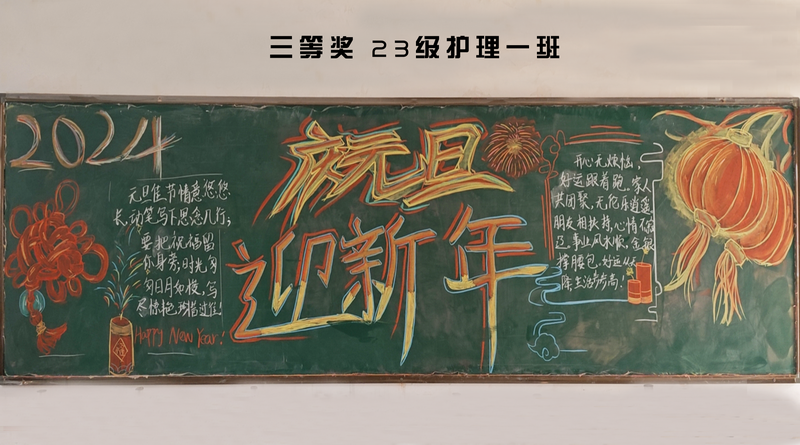 三等奖 23级护理一班
2024
庆元旦
迎新年
元旦佳节情意悠悠
长,动笔写下思念几行;
要把祝福留
你身旁;时光匆
匆日月如梭,写
Happy New Year!
开心无烦恼,
好运跟着跑。家人
共团聚,无忧乐逍遥
朋友相扶持,心情不
事业风水顺,金银
撑腰包。好运从
除生活